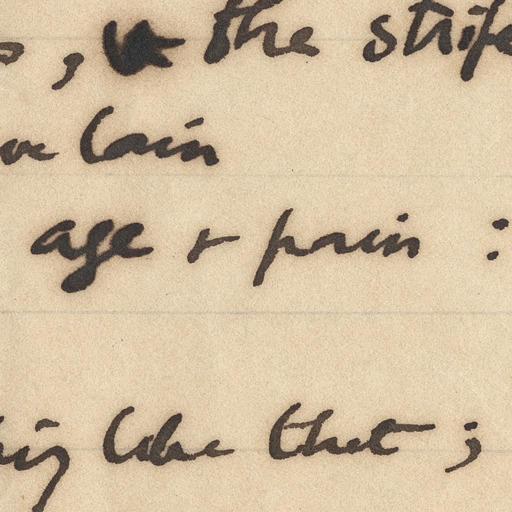 , the strife
lain
age + pain :
like that ;